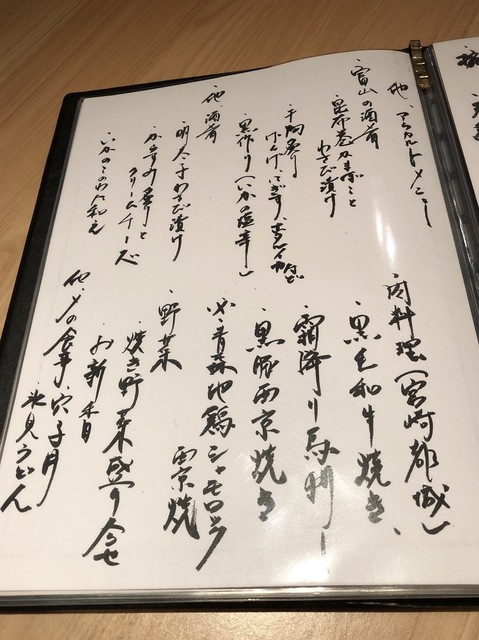 他、アラカルトメニュー
富山の酒肴
昆布巻かまぼこと
わさび漬け
干物炙り
げんげ、にぎす、ホタルイカなど
黒作り(いかの塩辛)
他 酒肴
明太子わさび漬け
からすみ炙りと
クリームチーズ
いかのこのわた和え
肉料理(宮崎都城)
黒毛和牛焼き、
霜降り馬刺し
黒豚西京焼き
青森地鶏シャモロック
西京焼
野菜
焼き野菜盛り合せ
お新香
他、〆の食事、穴子丼
氷見うどん